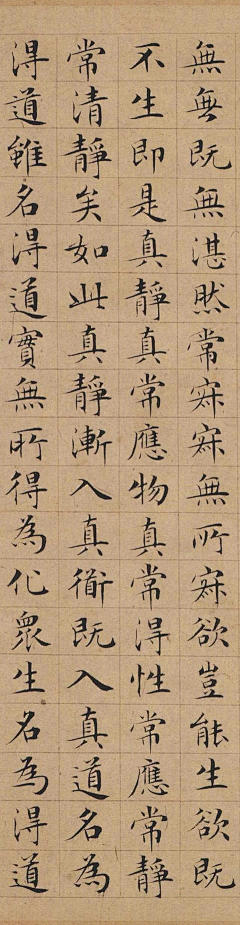 無無既無湛然常寂寂無所寂欲豈能生欲既
不生即是真靜真常應物真常得性常應常靜
常清靜矣如此真靜漸入真衜既入真道名為
得道雖名得道實無所得為化眾生名為得道